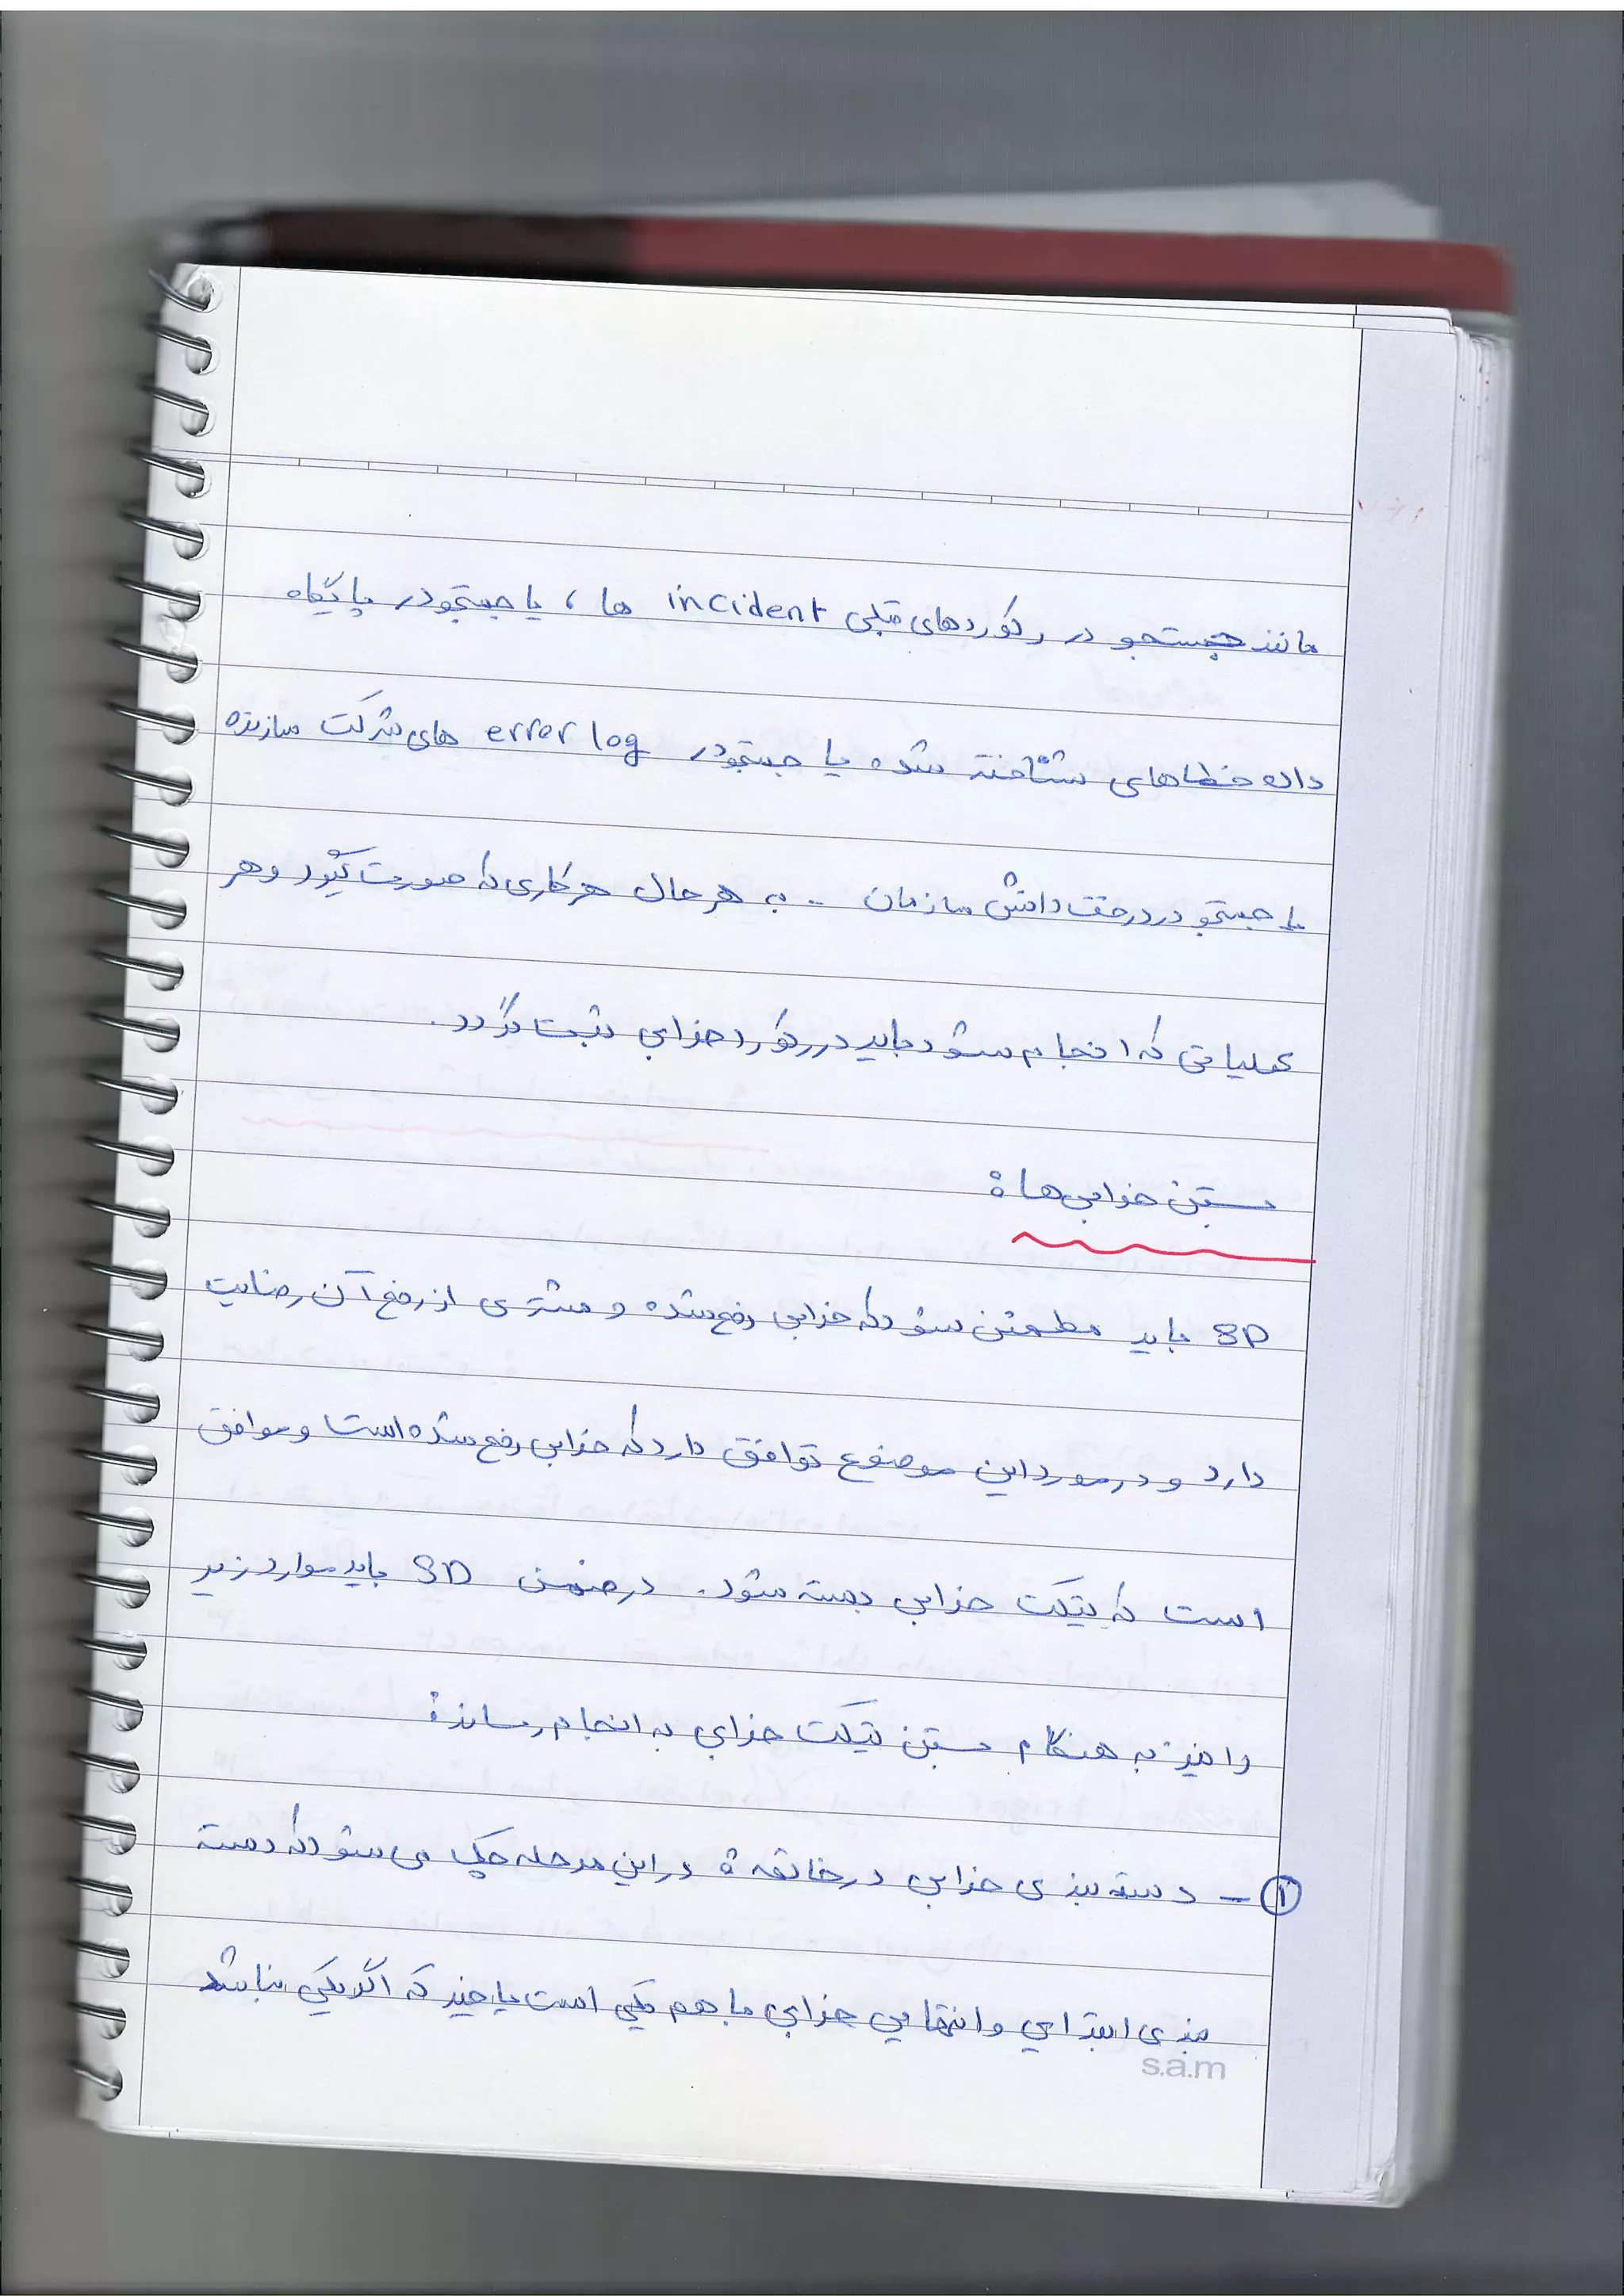 مانند جستجو در رکوردهای قبلی incident ها ، یا جستجو در پایگاه
داده خطاهای شناخته شده یا جستجو در error log های شرکت سازنده
یا جستجو در درخت دانش سازمان .. به هر حال هر کاری که صورت گیرد و هر
عملیاتی که انجام شود باید در رکورد خرابی ثبت گردد.
بستن خرابی ها :
SD باید مطمئن شود که خرابی رفع شده و مشتری از رفع آن رضایت
دارد و در مورد این موضوع توافق دارد که خرابی رفع شده است و موافق
است که تیکت خرابی بسته شود. در ضمن SD باید موارد زیر
را نیز به هنگام بستن تیکت خرابی به انجام رساند:
۱ - دسته بندی خرابی در خاتمه : در این مرحله چک می شود که دسته
بندی ابتدایی و انتهایی خرابی با هم یکی است یا خیر که اگر یکی نباشد
s.a.m